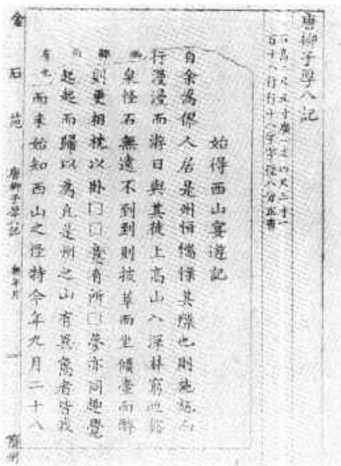 唐柳子厚八記
百十八行行十八字字徑八分正書
始得西山宴遊記
自余爲僇人居是州恒惴慄其隙也則施施而
行漫漫而游日與其徒上高山入深林窮迴谿
幽泉怪石無遠不到到則披草而坐傾壺而醉
醉則更相枕以卧□□意有所□夢亦同趣覺
而起起而歸以爲凡是州之山有異態者皆我
有也而未始知西山之怪特今年九月二十八
金石苑 唐柳子厚記 無年月 一